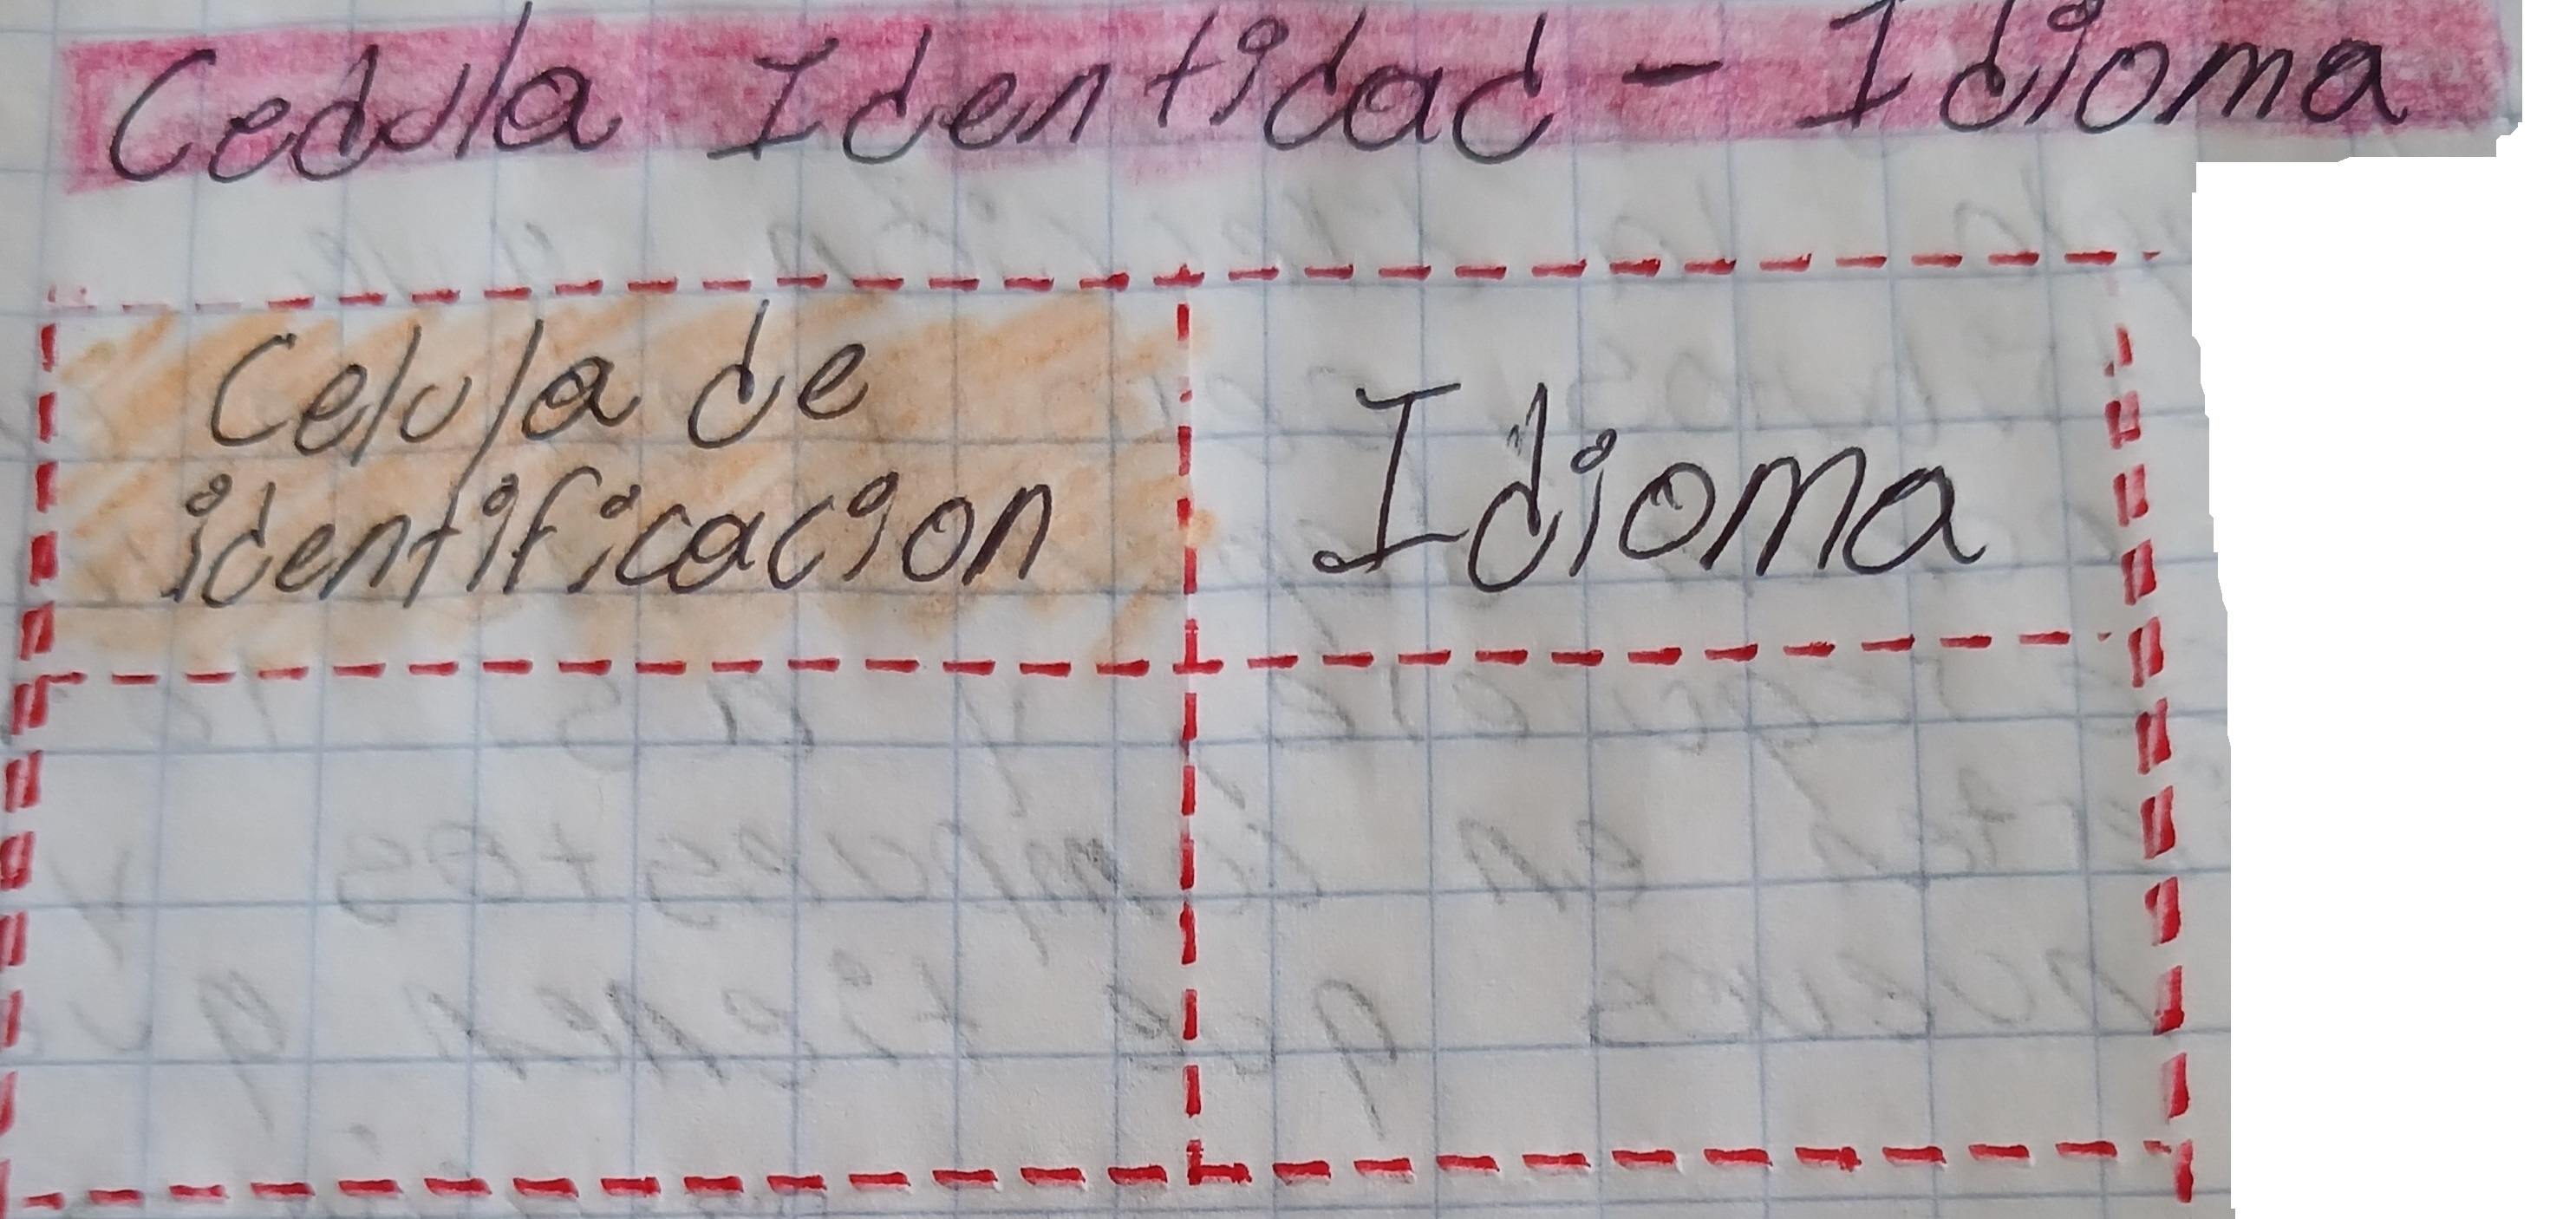 Cedula Identidad - Idioma
Celula de
identificacion
Idioma